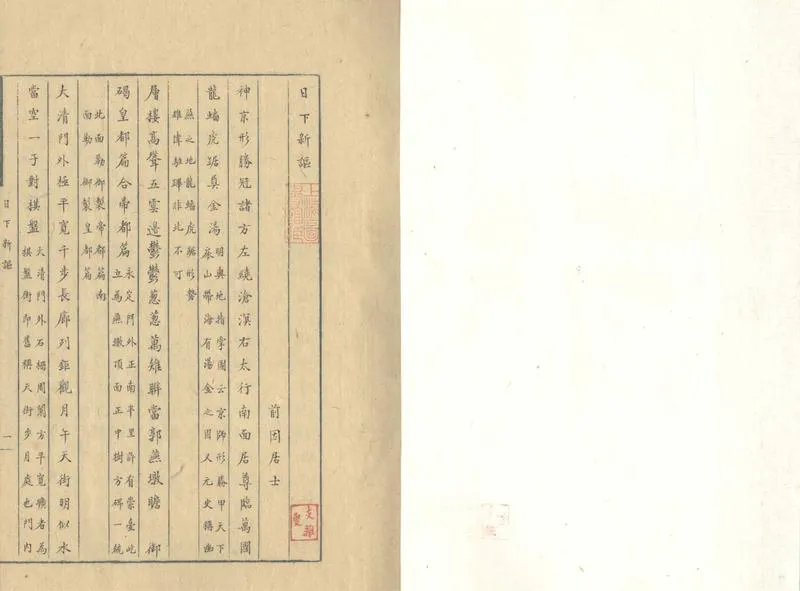 日下新謳
前因居士
神京形勝冠諸方左繞滄溟右太行南面居尊臨萬國
龍蟠虎踞奠金湯
明輿地指掌圖云京師形勝甲天下
扆山帶海有湯金之固又元史稱幽
燕之地龍蟠虎踞形勢
雄偉駐蹕非此不可
層樓高聳五雲邊鬱鬱蔥蔥萬雉聯當郭燕墩瞻 御
碣皇都篇合帝都篇
永定門外正南半里許有崇臺屹
立為燕墩頂面正中樹方碑一統
北面勒御製帝都篇南
面勒御製皇都篇
大清門外極平寬千步長廊列鉅觀月午天街明似水
當空一子對棋盤
大清門外石柵周圍方平寬曠者為
棋盤街即舊稱天街步月處也門內
日下新謳
一